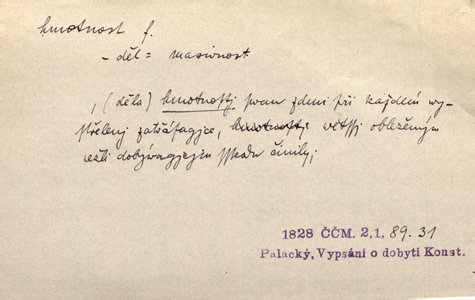 hmotnost f.
- děl = masivnost
, (děla) hmotnostj swau zdmi při každém wy-
střelenj zatřásagjce, hmotnostj wětssj obleženým
než dobýwagjcjm sskodu činily;
1828 ČČM. 2,1, 89. 31
Palacký, Vypsání o dobytí Konst.